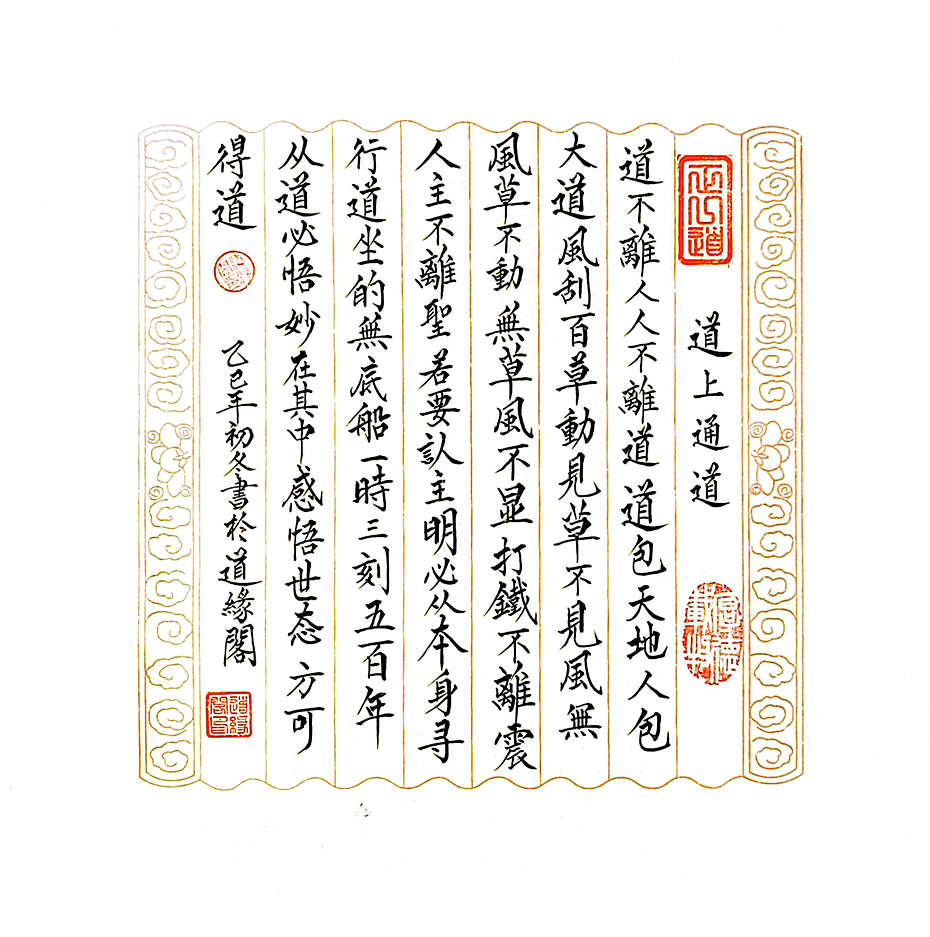 正心道
道上通道
厚德載物
道不離人人不離道道包天地人包
大道風刮百草動見草不見風無
風草不動無草風不显打鐵不離震
人主不離聖若要认主明必从本身寻
行道坐的無底船一時三刻五百年
从道必悟妙在其中感悟世态方可
得道
乙巳年初冬書於道緣閣